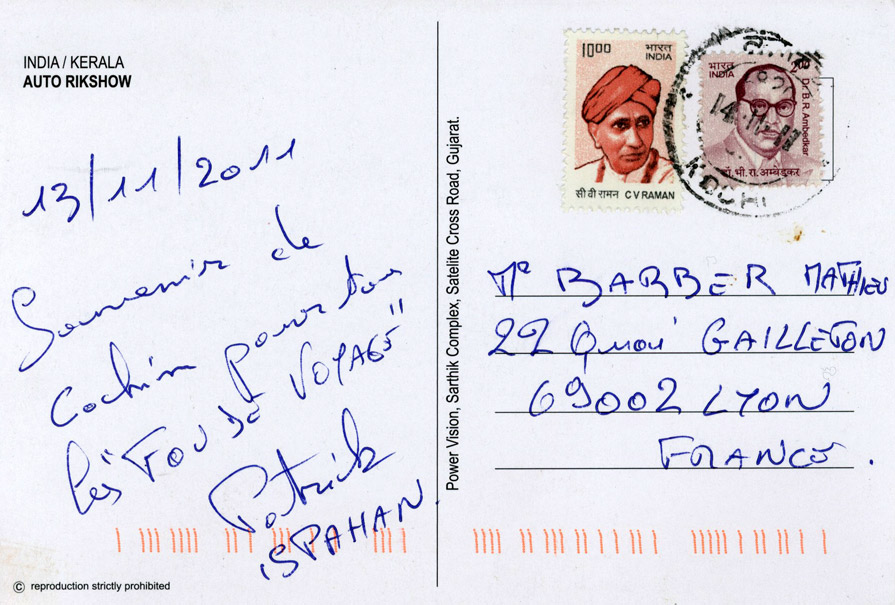 INDIA / KERALA
AUTO RIKSHOW
13/11/2011
Souvenir de
Cochin pour tou
les "FOU DE VOYAGE"
Patrick
ISPAHAN.
© reproduction strictly prohibited
Power Vision, Sarthik Complex, Satelite Cross Road, Gujarat.
10.00 भारत
INDIA
सी वी रामन C V RAMAN
भारत
INDIA
Dr. B. R. Ambedkar
डॉ. भी. रा. अम्बेडकर
KOCHI
Mr BARBER MATHIEU
22 Quai GAILLETON
69002 LYON
FRANCE.